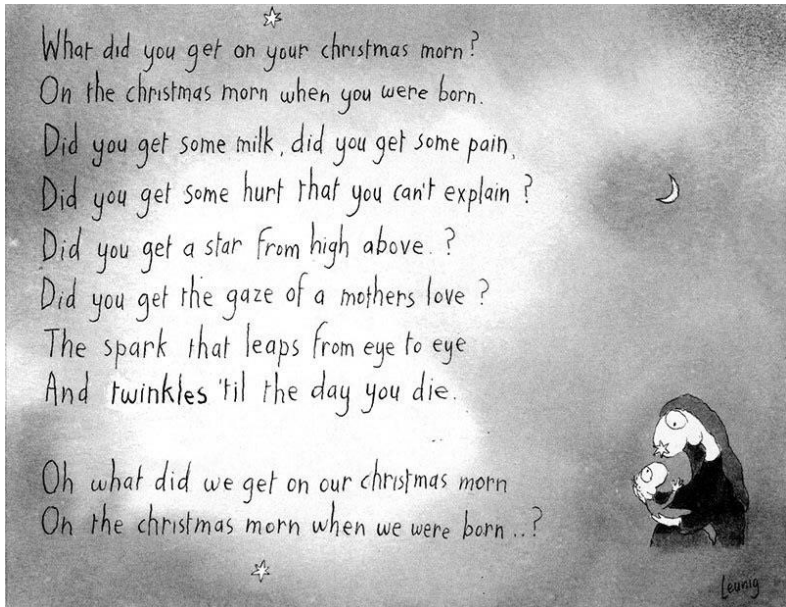 What did you get on your christmas morn?
On the christmas morn when you were born.
Did you get some milk, did you get some pain,
Did you get some hurt that you can't explain?
Did you get a star from high above.?
Did you get the gaze of a mothers love?
The spark that leaps from eye to eye
And twinkles 'til the day you die.
Oh what did we get on our christmas morn
On the christmas morn when we were born..?
Leunig